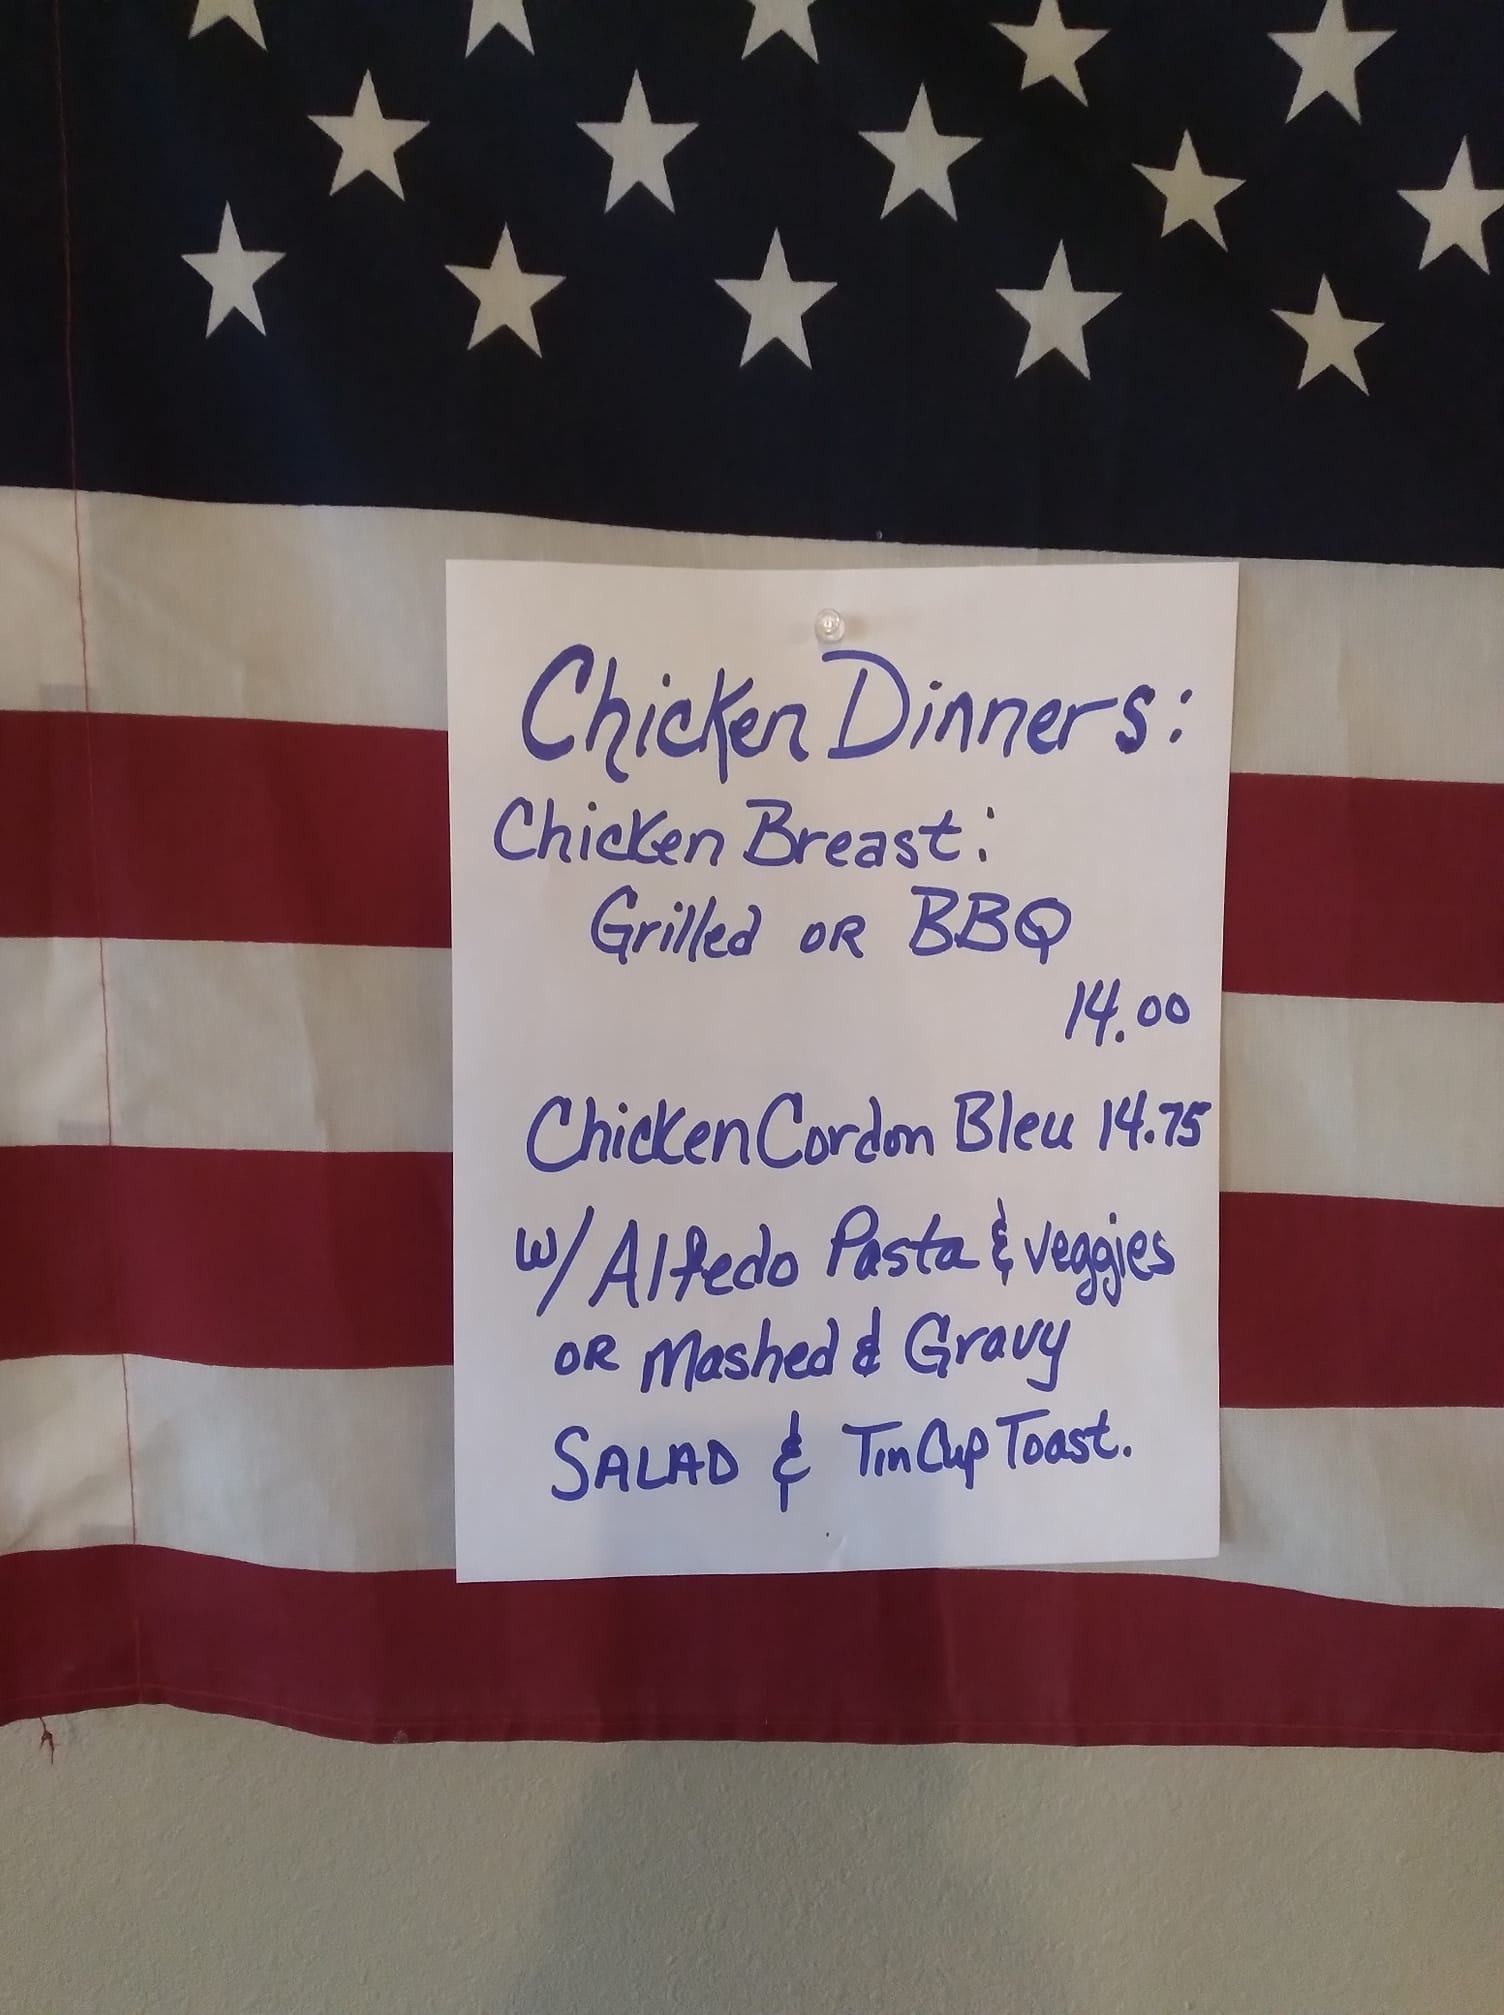 Chicken Dinners:
Chicken Breast:
Grilled OR BBQ
14.00
Chicken Cordon Bleu 14.75
w/ Alfredo Pasta & veggies
OR Mashed & Gravy
SALAD & Tin Cup Toast.